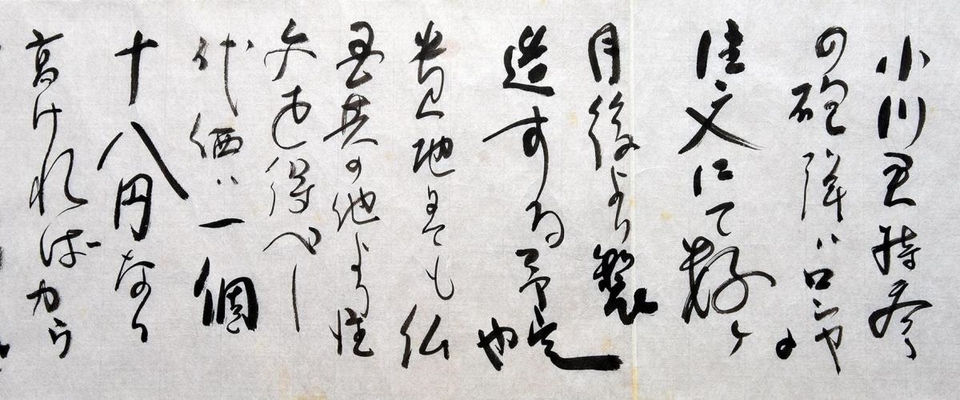 小川君持参
の砲弾ハロシヤの
注文にて数ヶ
月後より製
造する予定也
地にても仏
国其の他より注
文を得べし
代価ハ一個
十八円なり
高ければカラ